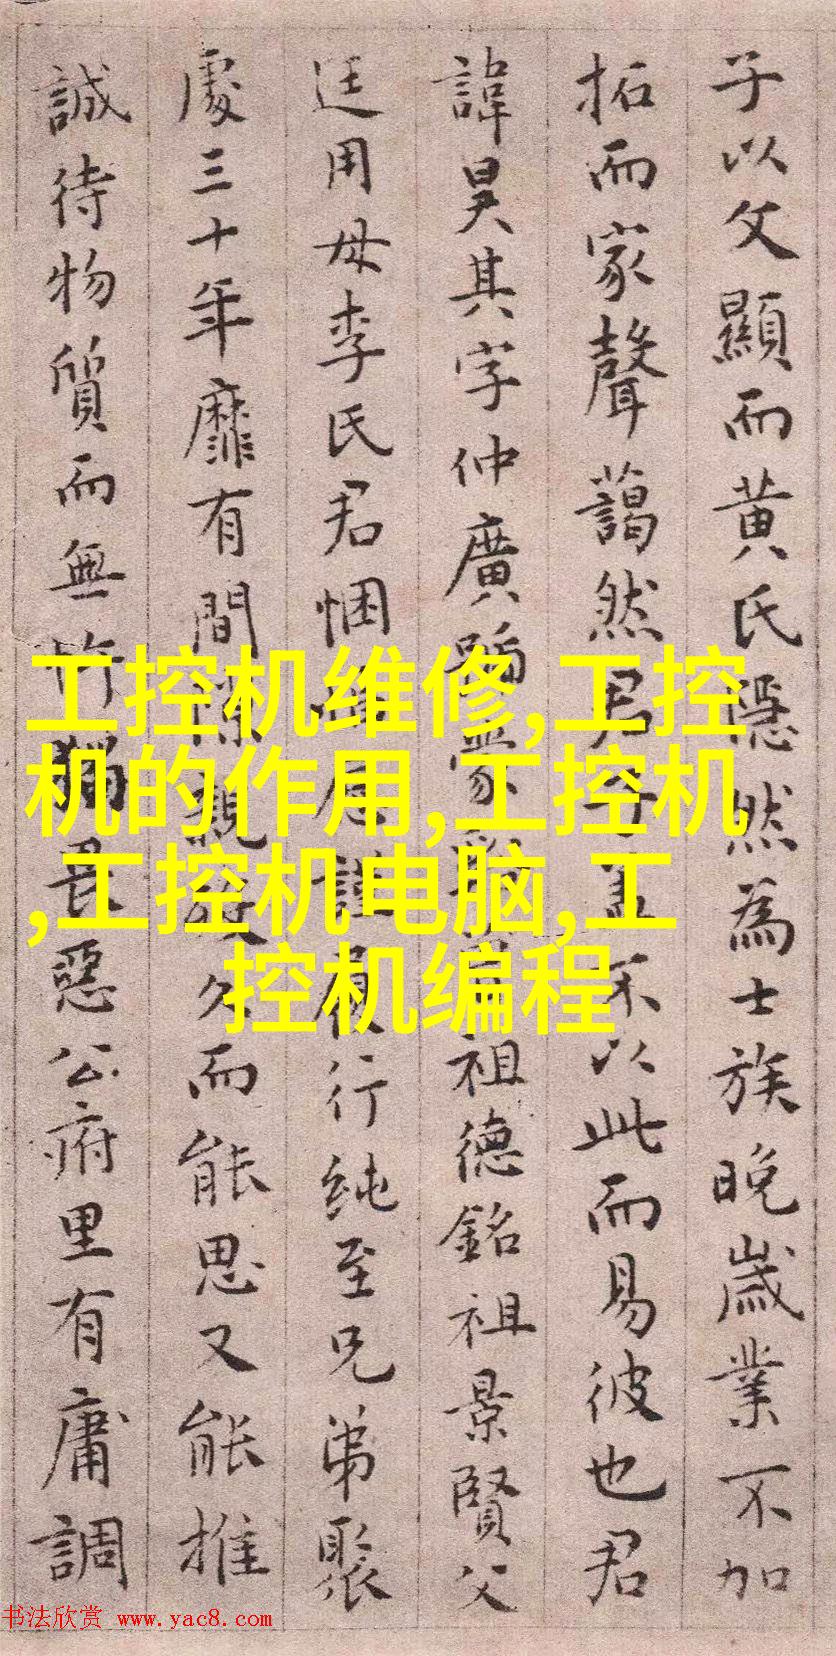 子以父顯而黄氏隱然為士族晚歲業不加
拓而家聲藹然君子蓋不以此而易彼也君
諱昊其字仲廣號蒙祖德銘祖景賢父
廷用母李氏君悃謹履行純至兄弟聚
處三十年靡有間隙親歿久而能思又能推
誠待物質而無忤猶畏惡公府里有庸調
工控机维修,工控
机的作用,工控机
,工控机电脑,工
控机编程
书法欣赏 www.yac8.com